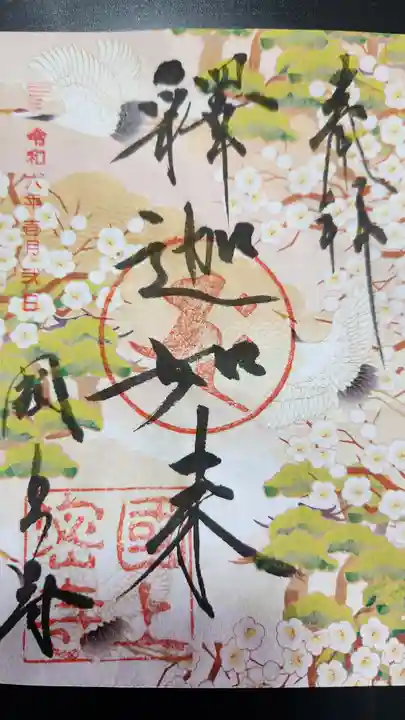 奉拝
釋迦如来
令和六年壱月弐日
国上寺
國上